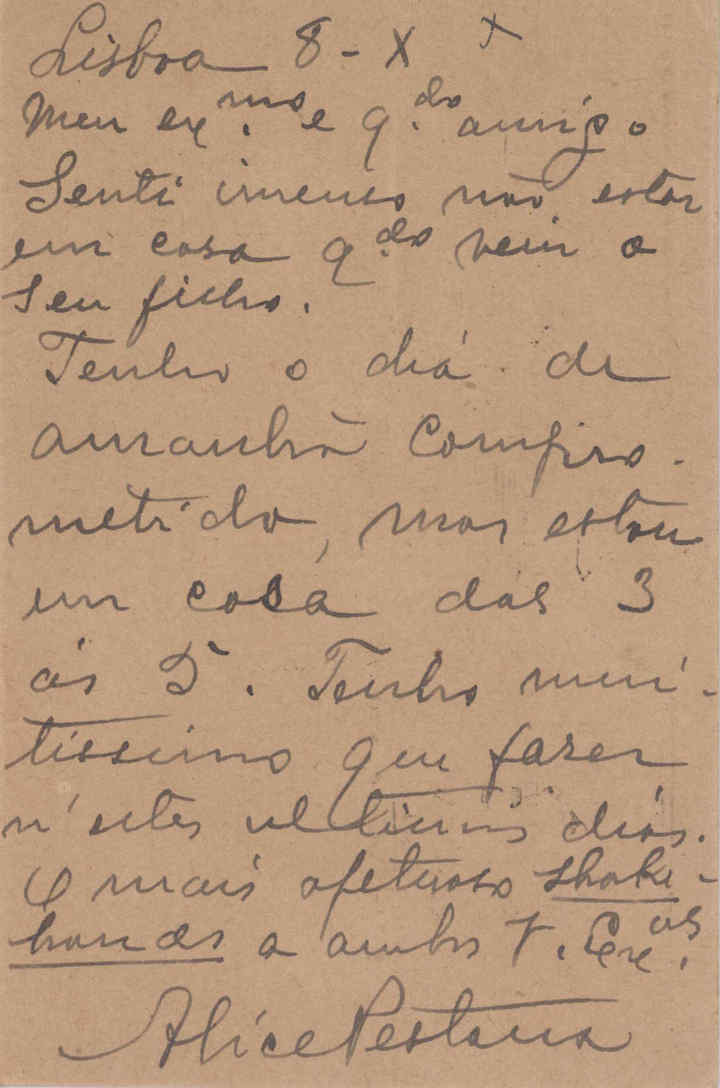 Lisboa 8-X
Meu ex.mo e q.do amigo
Senti imenso não estar
em casa q.do veiu o
seu filho.
Tenho o dia de
amanhã compro-
metido, mas estou
em casa das 3
ás 5. Tenho mui-
tissimo que fazer
n'estes ultimos dias.
O mais afetuoso shake-
hands a ambos V. Ex.as
Alice Pestana